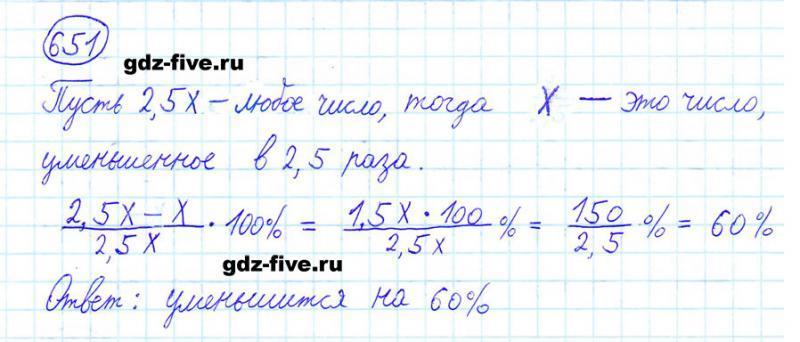 651
gdz-five.ru
Пусть 2,5x – любое число, тогда x — это число,
уменьшенное в 2,5 раза.
(2,5x – x)/(2,5x) · 100% = (1,5x · 100)/(2,5x) % = 150/2,5 % = 60%
gdz-five.ru
Ответ: уменьшится на 60%